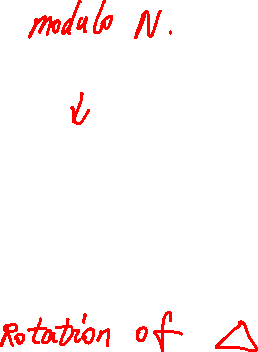 modulo N.
↓
Rotation of △